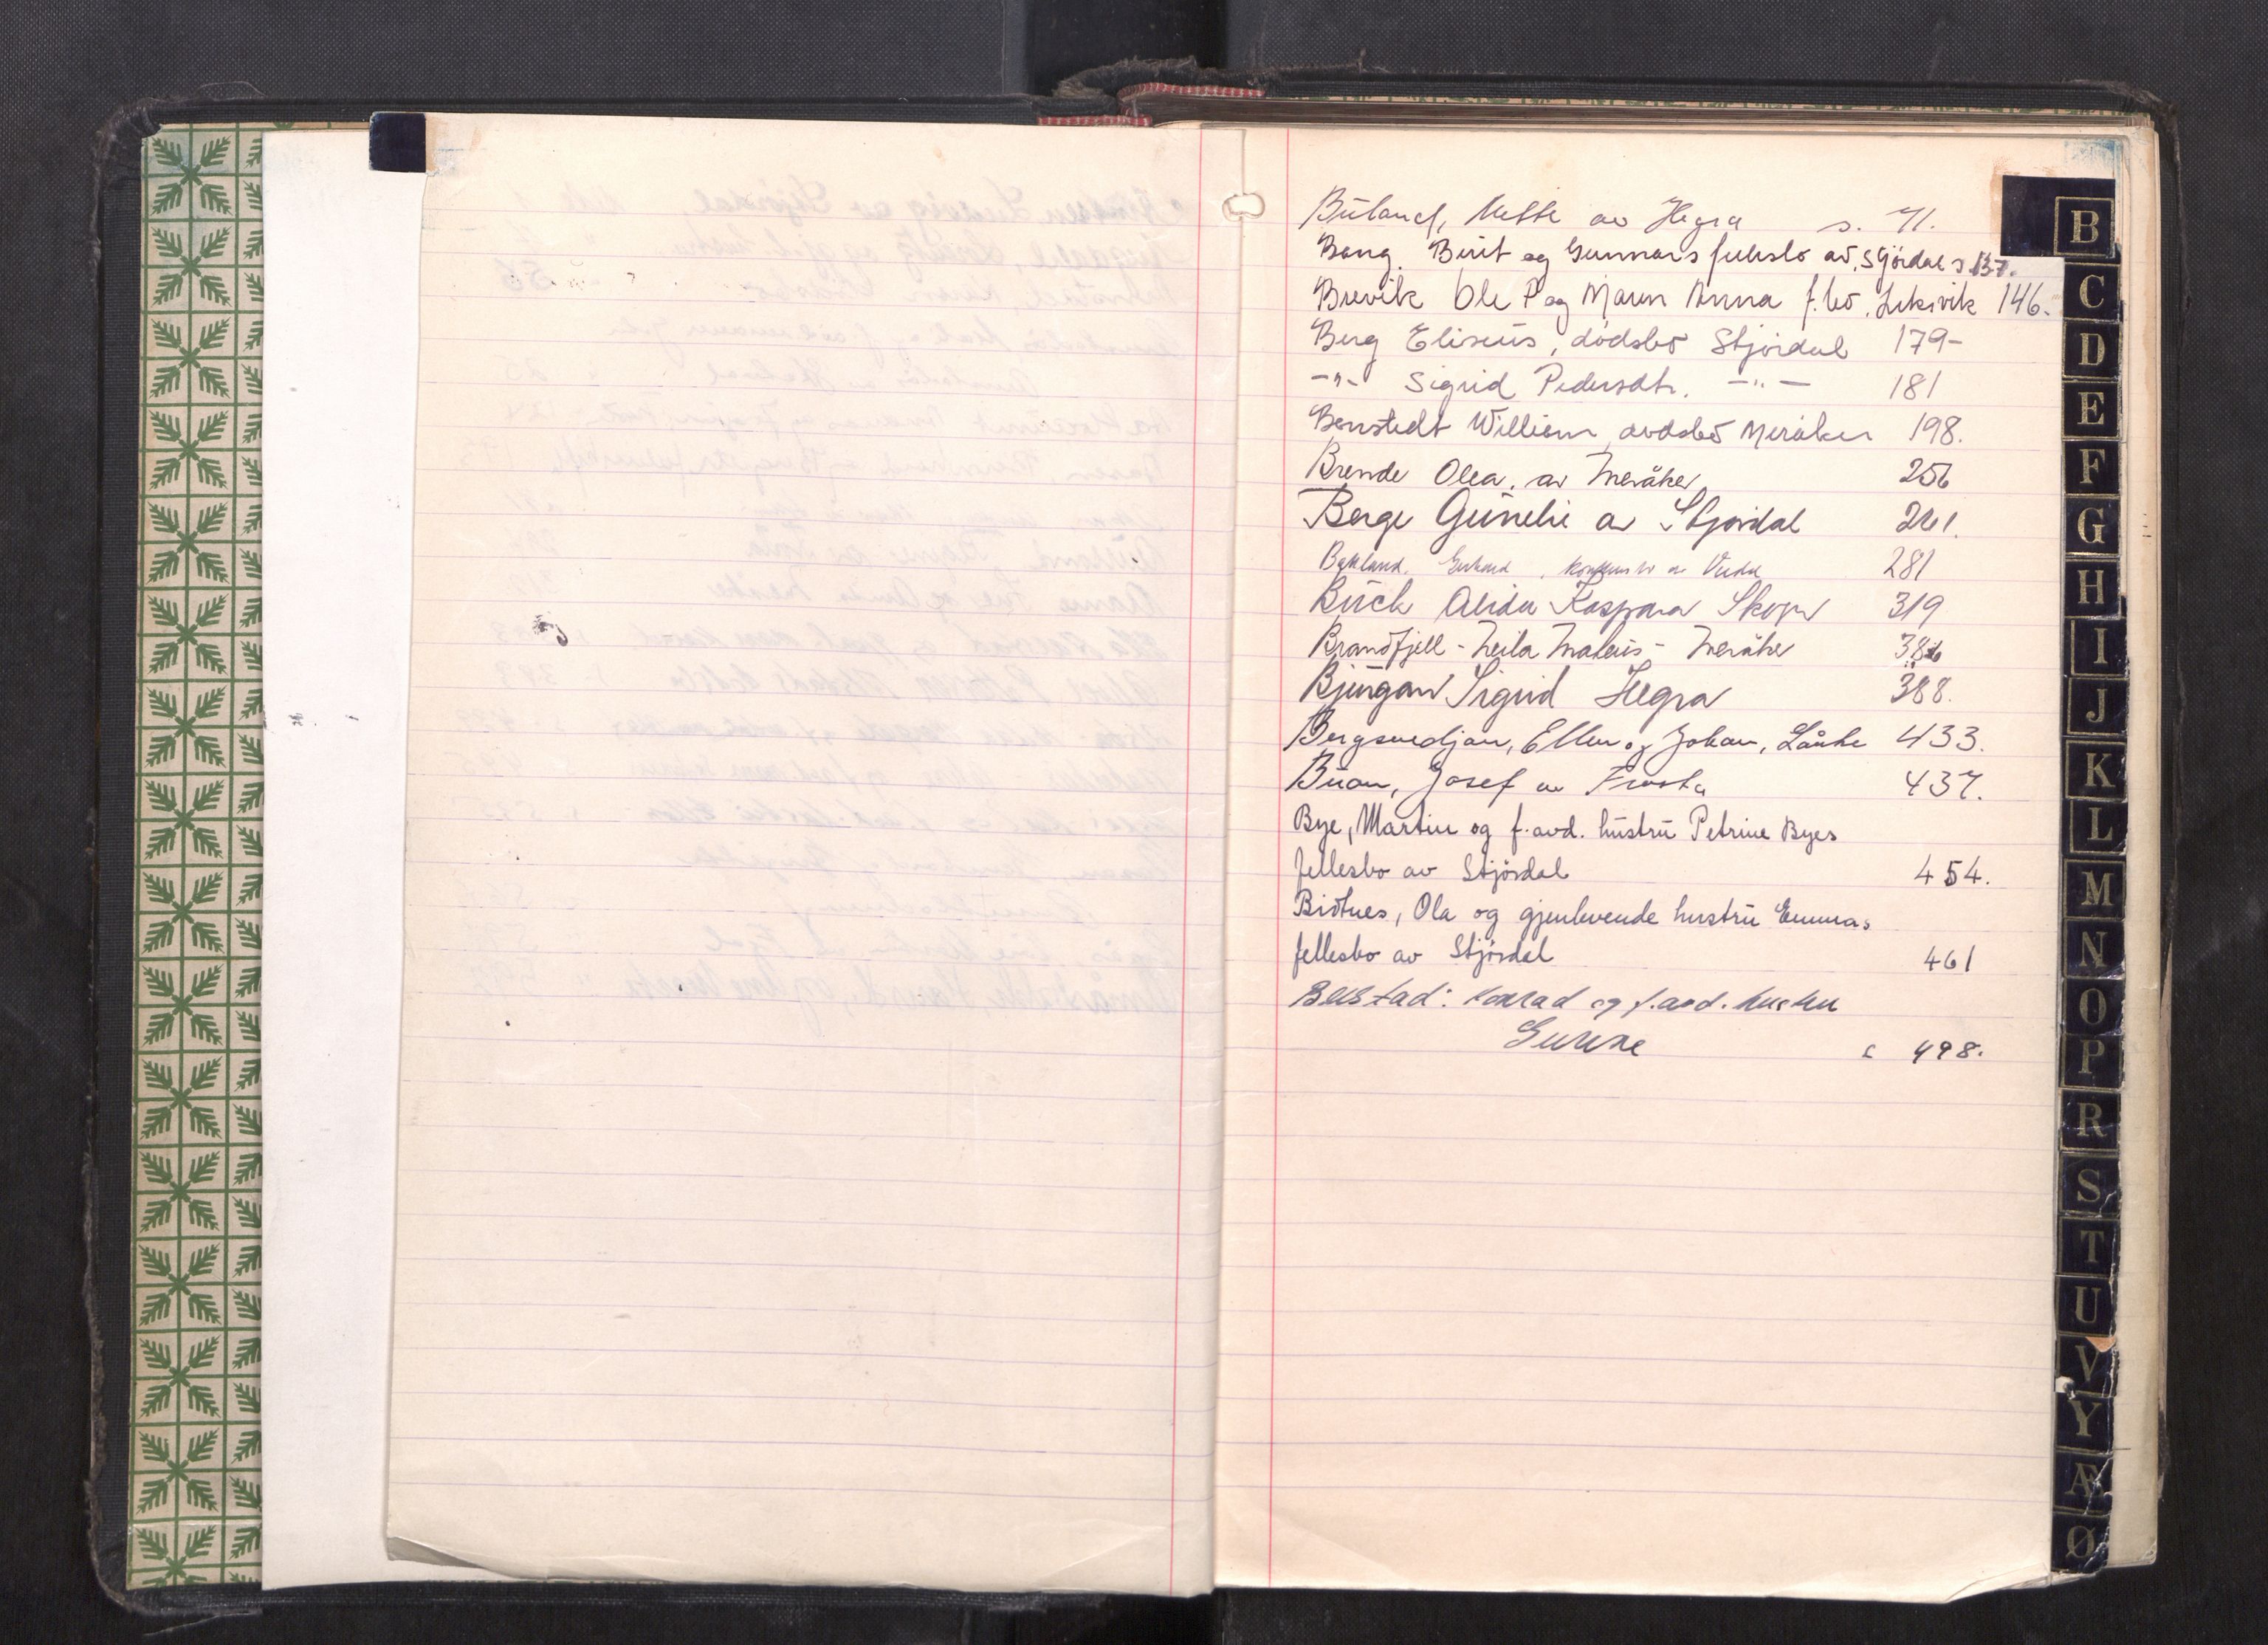 Buland, Mette av Hegra s. 71.
Bang. Berit og Gunnars fellesbo av Stjördal s 137.
Brevik Ole P og Maren Anna f. bo, Leksvik 146.
Berg Eliseus, dödsbo Stjördal 179-
-"- Sigrid Pedersdtr. -"- 181
Benstedt William, dödsbo Meråker 198.
Brende Olea. av Meråker 256
Berge Gunelie av Stjördal 261.
Bakland. konkursbo av 281
Buck Alida Kaspara Skogn 319
Brandfjell - Meråker 386
Bjurgan Sigrid Hegra 388.
Bergsmedjan, Ellen og Johan, Lånke 433.
Buan, Josef av Frosta 437.
Bye, Martin og f. avd. hustru Petrine Byes
fellesbo av Stjördal 454.
Bidtnes, Ola og gjenlevende hustru Emmas
fellesbo av Stjördal 461
Beistad: Konrad og f. avd. hustru
498.
B
C
D
E
F
G
H
I
J
K
L
M
N
O
P
R
S
T
U
V
Y
Æ
Ø